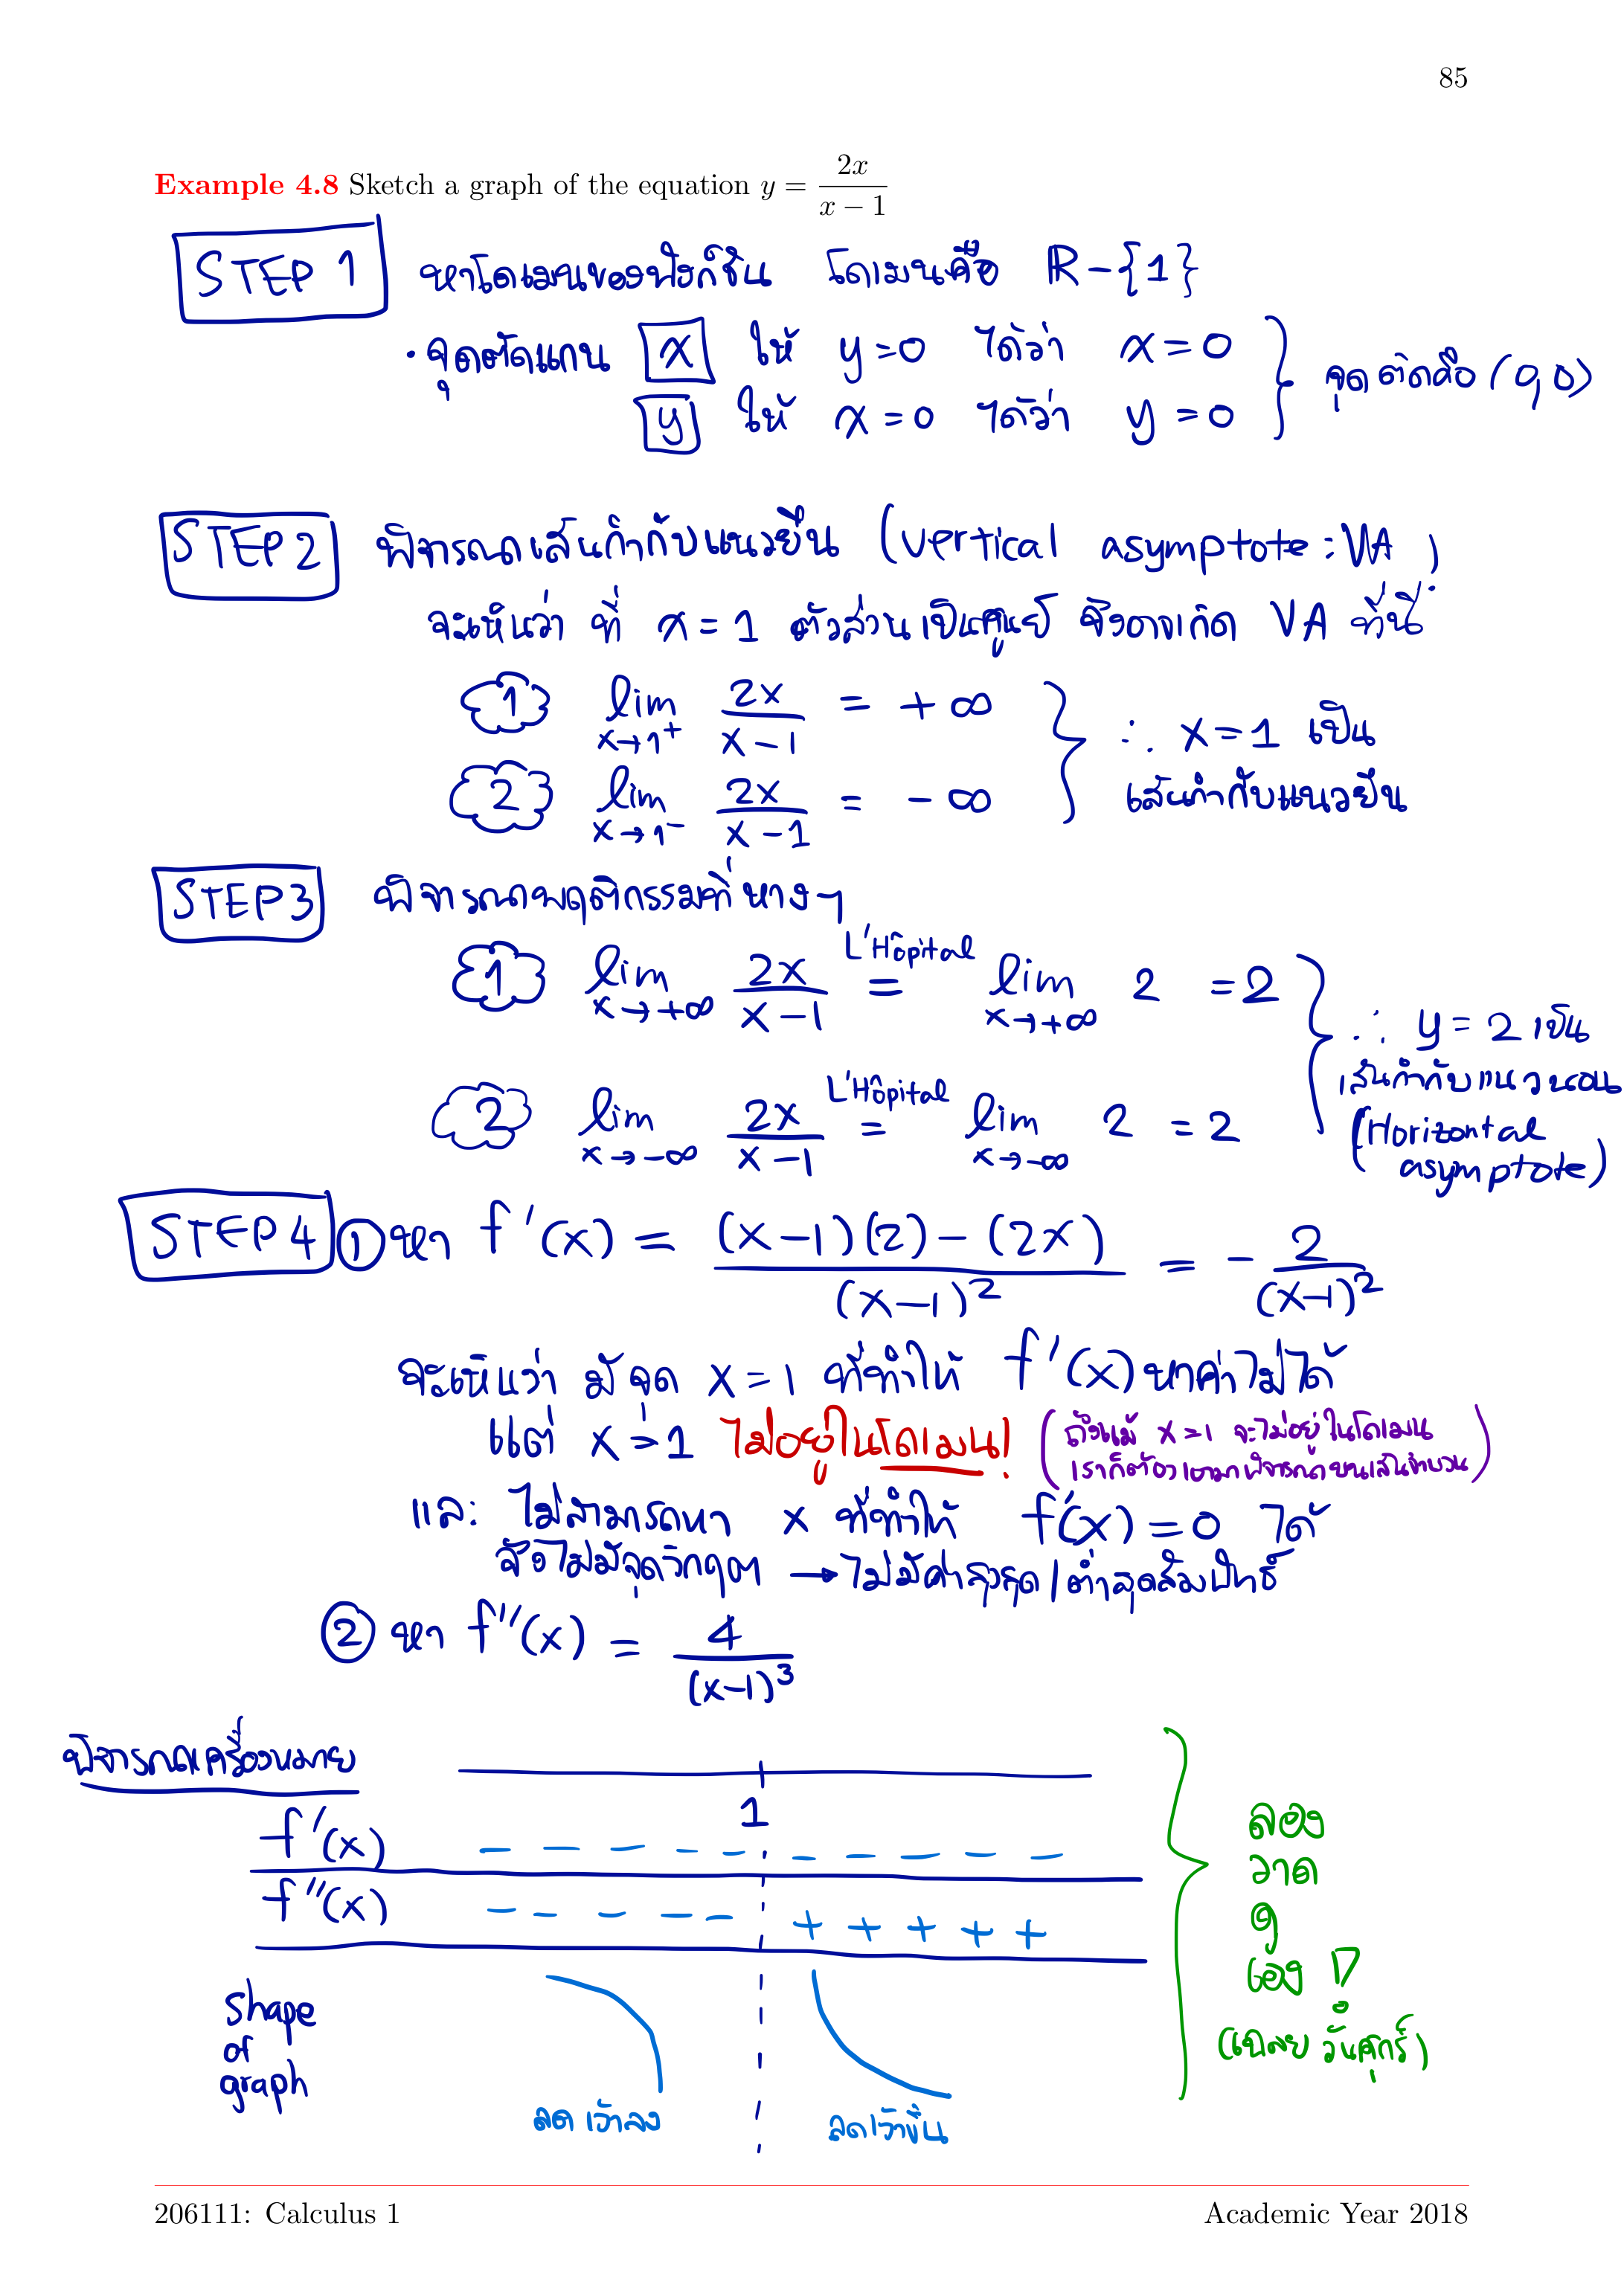 85
Example 4.8 Sketch a graph of the equation y = 2x / (x − 1)
STEP 1 หาโดเมนของฟังก์ชัน โดเมนคือ ℝ – {1}
· จุดตัดแกน x ให้ y = 0 ได้ว่า x = 0
y ให้ x = 0 ได้ว่า y = 0
จุดตัดคือ (0, 0)
STEP 2 พิจารณาเส้นกำกับแนวยืน (vertical asymptote : VA)
จะเห็นว่า ที่ x = 1 ตัวส่วนเป็นศูนย์ จึงอาจเกิด VA ที่นี่
1 lim x→1⁺ 2x / (x – 1) = + ∞
2 lim x→1⁻ 2x / (x – 1) = – ∞
∴ x = 1 เป็น
เส้นกำกับแนวยืน
STEP 3 พิจารณาพฤติกรรมที่ห่างๆ
1 lim x→+∞ 2x / (x – 1) L'Hôpital = lim x→+∞ 2 = 2
2 lim x→–∞ 2x / (x – 1) L'Hôpital = lim x→–∞ 2 = 2
∴ y = 2 เป็น
เส้นกำกับแนวนอน
(Horizontal
asymptote)
STEP 4 ① หา f'(x) = ((x–1)(2) – (2x)) / (x–1)² = – 2 / (x–1)²
จะเห็นว่า มีจุด x = 1 ที่ทำให้ f'(x) หาค่าไม่ได้
แต่ x = 1 ไม่อยู่ในโดเมน! (ถึงแม้ x = 1 จะไม่อยู่ในโดเมน
เราก็ต้องเอามาพิจารณาบนเส้นจำนวน)
และ ไม่สามารถหา x ที่ทำให้ f'(x) = 0 ได้
จึงไม่มีจุดวิกฤต → ไม่มีค่าสูงสุด/ต่ำสุดสัมพัทธ์
② หา f''(x) = 4 / (x–1)³
พิจารณาเครื่องหมาย
1
f'(x) – – – – – – – – – –
f''(x) – – – – – + + + + +
Shape
of
graph
ลด เว้าลง ลดเว้าขึ้น
ลอง
วาด
ดู
เอง !
(เฉลย วันศุกร์)
206111: Calculus 1 Academic Year 2018